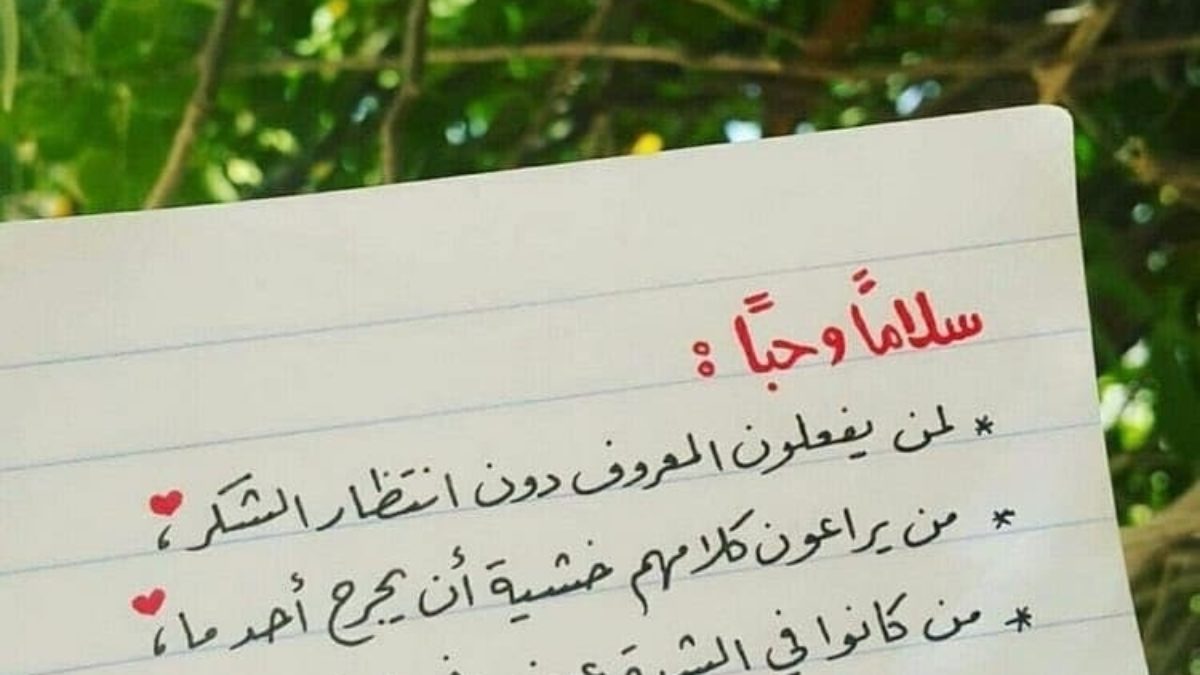 سلاماً وحباً :
* لمن يفعلون المعروف دون انتظار الشكر ،
* من يراعون كلامهم خشية أن يجرح أحد ما ،
* من كانوا في